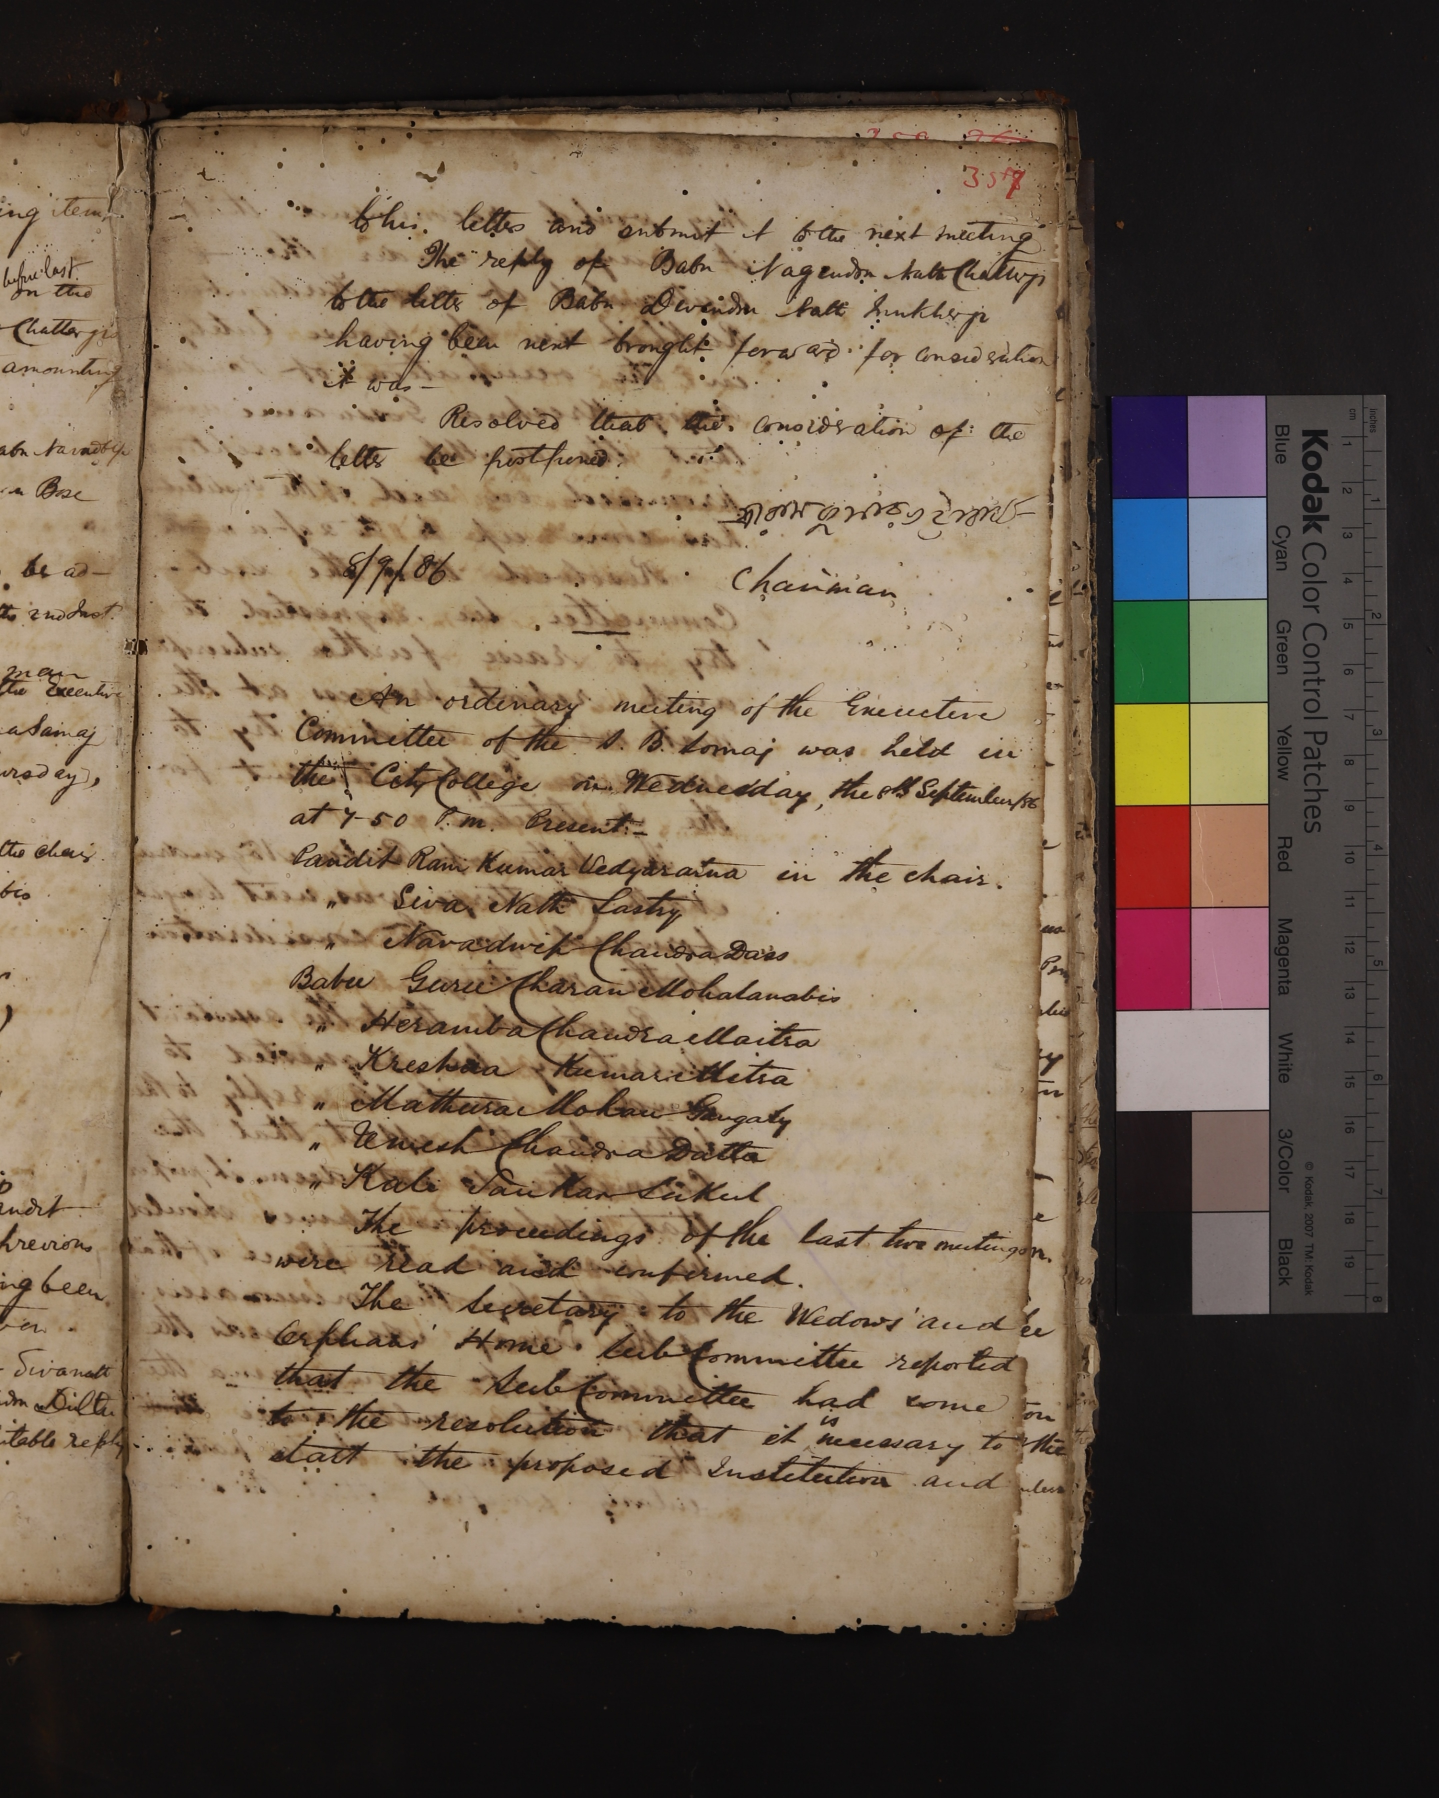 357
to his letter and submit it to the next meeting
The reply of Babu Nagendra Nath Chatterji
to the letter of Babu Devendra Nath Mukherji
having been next brought forward for consideration
it was —
Resolved that the consideration of the
letter be postponed.
8/9/86
Chairman
An ordinary meeting of the Executive
Committee of the S. B. Somaj was held in
the City College on Wednesday, the 8th September/86
at 7-50 P.m. Present:—
Pandit Ram Kumar Vedyaratna in the chair.
" Siva Nath Sastry
" Navadwip Chandra Dass
Babu Guru Charan Mohalanabis
" Heramba Chandra Maitra
" Kreshna Kumar Mitra
" Mathura Mohan Gangaly
" Umesh Chandra Datta
" Kali Sankar Sukul
The proceedings of the last two meetings
were read and confirmed.
The Secretary to the Wedows' and
Orphans' Home Sub Committee reported
that the Sub Committee had come
to the resolution that it is necessary to
start the proposed Institution and
ing item
before last
on the
Chatterji
amounting
Bose
be ad-
the 2nd Inst.
man
the Executive
a Samaj
ursday),
the chair.
bis
andit
previous
ng been
Sivanath
itable reply
Kodak Color Control Patches
Blue Cyan Green Yellow Red Magenta White 3/Color Black
© Kodak, 2007 TM: Kodak
inches
cm
1 2 3 4 5 6 7 8 9 10 11 12 13 14 15 16 17 18 19
1 2 3 4 5 6 7 8